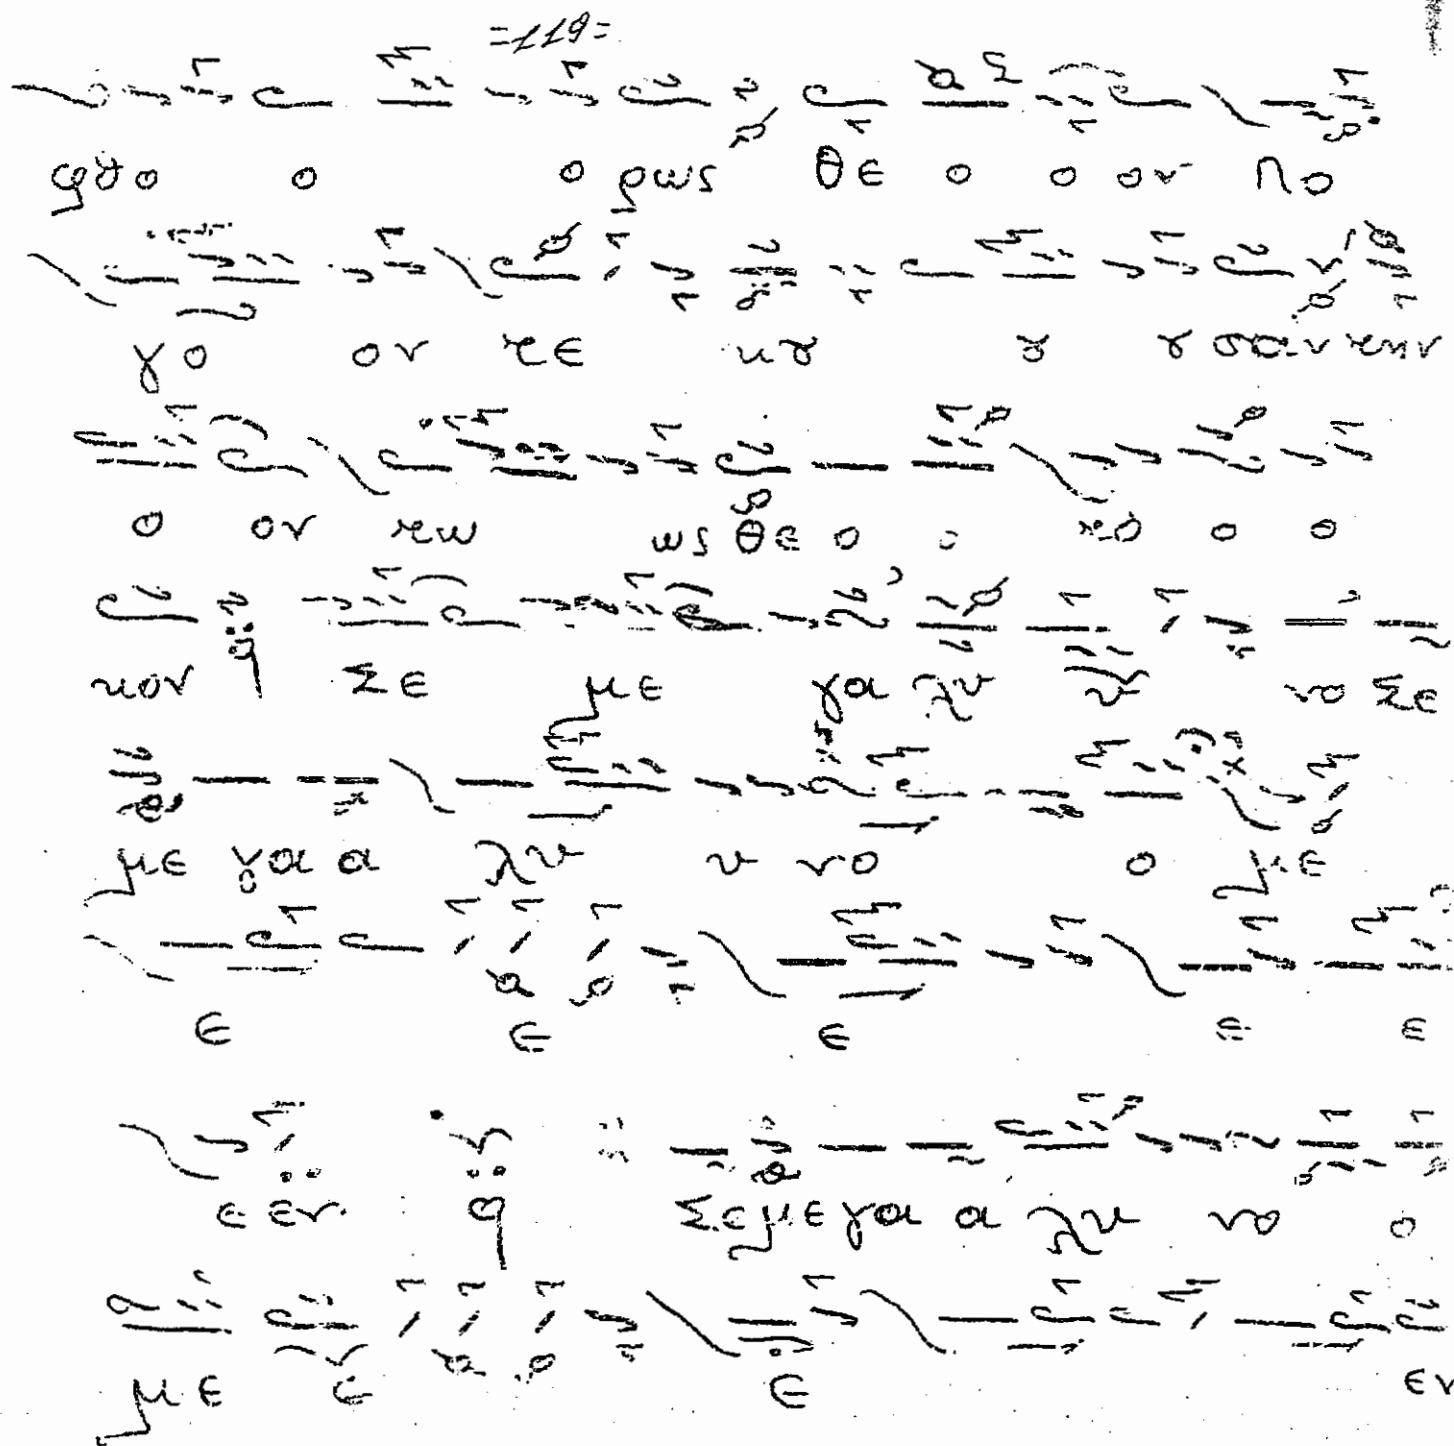 =119=
φȣο ο ο ρως θε ο ο ον λο
γο ον τε κȣ ȣ ȣ σαν την
ο ον τω ως θε ο ο το ο ο
κον Σε με γα λυ υ νο Σε
με γα α λυ υ νο ο με
ε ε ε ε ε
ε εν Σε με γα α λυ νο ο
με ε ε εν